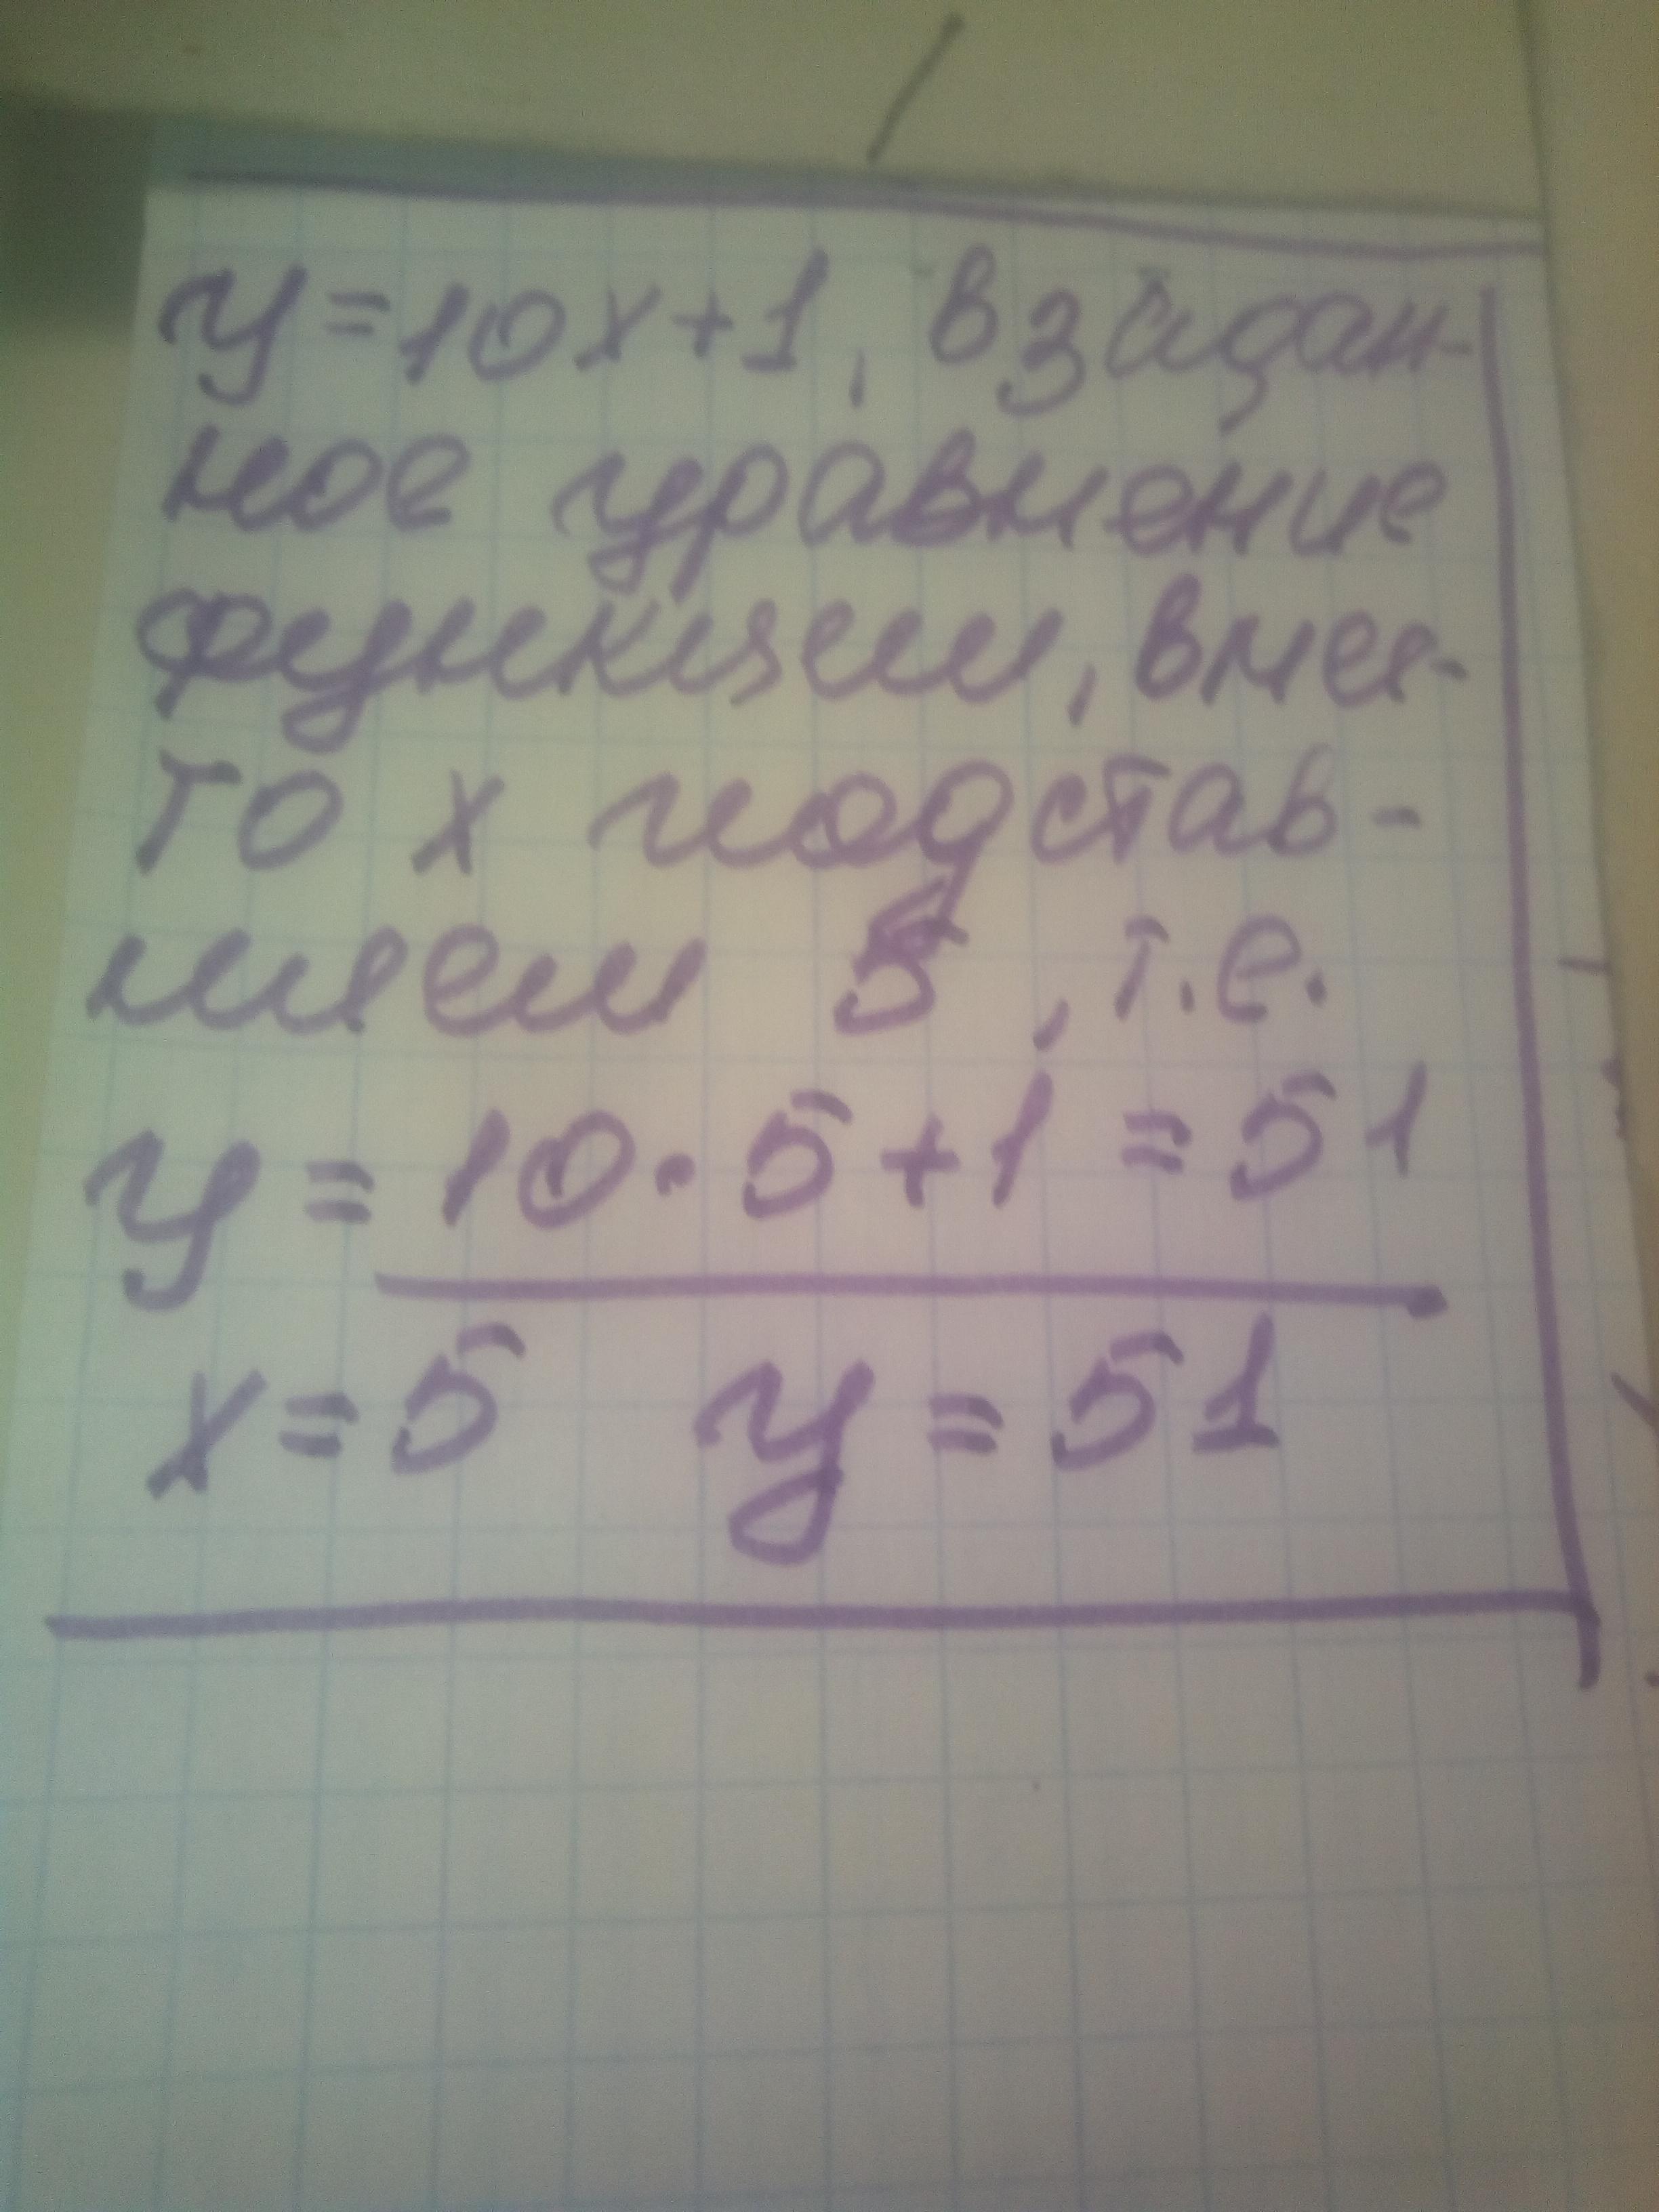 y=10x+1, в задан-
ное уравнение
функции, вмес-
то x подстав-
ляем 5, т.е.
y = 10·5+1 = 51
x=5 y=51